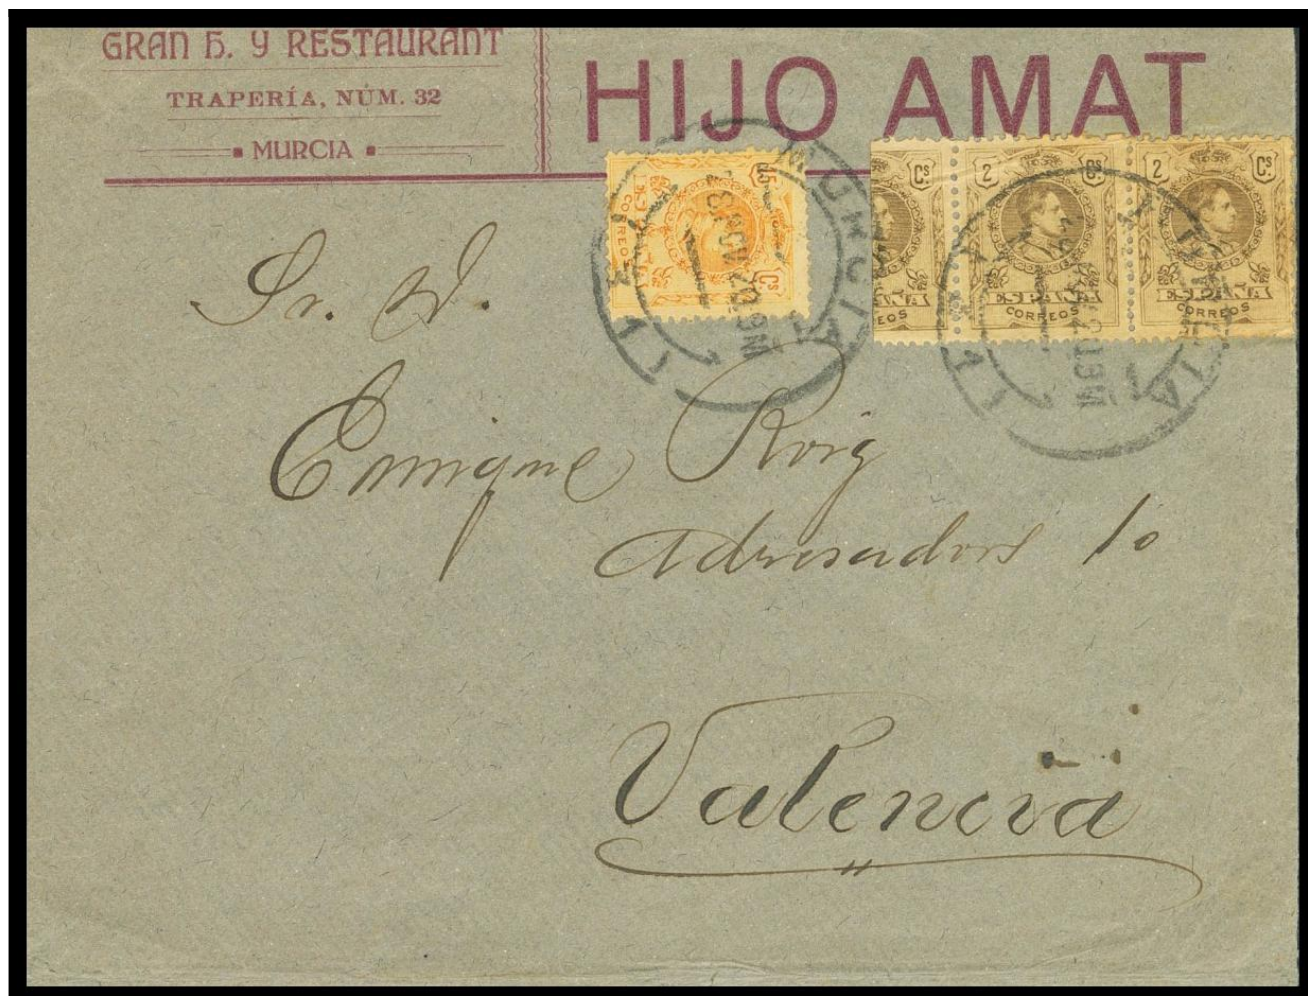 GRAN H. Y RESTAURANT
TRAPERÍA, NÚM. 32
MURCIA
HIJO AMAT
15 Cs
CORREOS
Cs.
EOS
2 Cs
ESPAÑA
CORREOS
2 Cs
ESPAÑA
CORREOS
MURCIA
MURCIA
Sr. D.
Enrique Roig
Adresadors 10
Valencia